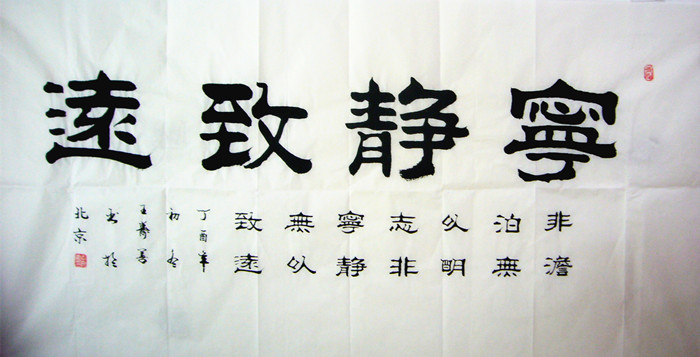 寧静致遠
非澹
泊無
以明
志非
寧静
無以
致遠
丁酉年
初冬
王
书於
北京